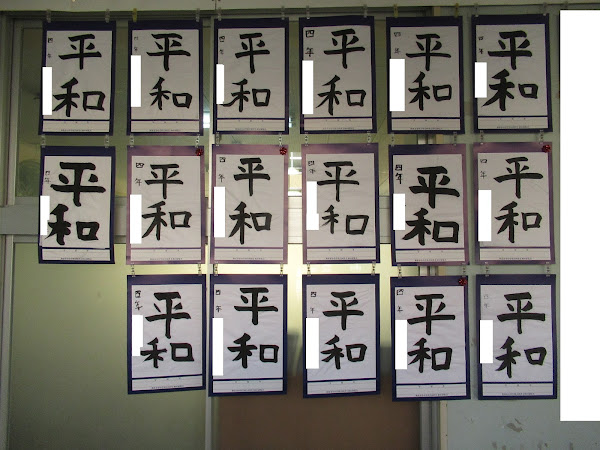 平和
四年
平和
四年
平和
四年
平和
四年
平和
四年
平和
四年
平和
四年
平和
四年
平和
四年
平和
四年
平和
四年
平和
四年
平和
四年
平和
四年
平和
四年
平和
四年
平和
四年